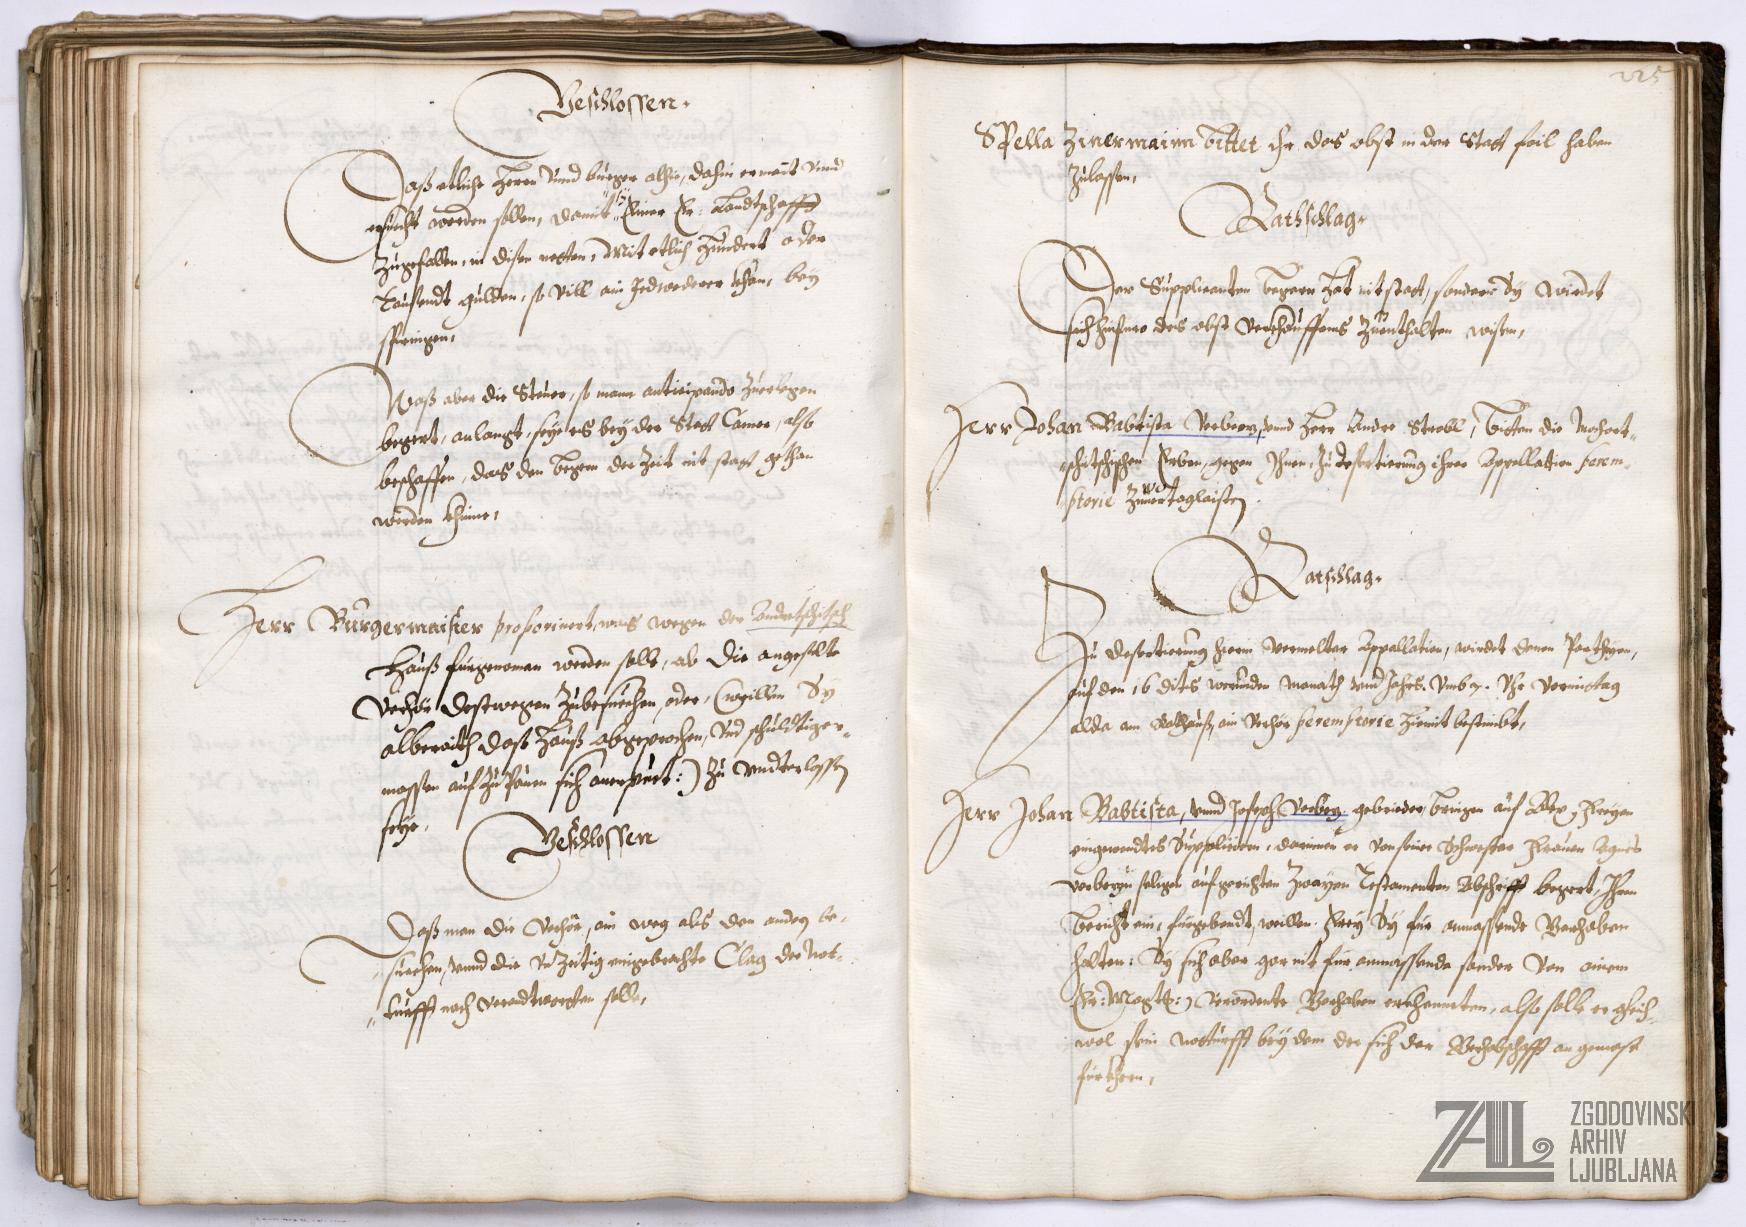 Beschlossen.
Daß etliche Herrn unnd burger alhie, dahin ermant unnd
ersuecht werden sollen, damit sy Einer Er: Landtschafft
zugefallen, in disen nötten, mit etlich Hundert oder
Tausendt gulden, so vill ain Jedwederer khan, bey
springen,
Waß aber die Steuer, so mann anticipando zuerlegen
begert, anlangt, seye es bey der Statt Camer, also
beschaffen, das den begern der Zeit nit statt gethan
werden khünne,
Herr Burgermaister proponiert, was wegen der Andretschitsch
Hauß fürgenomen werden solle, ob die angestelte
Verhör destwegen zubesuechen, oder, (weillen Sy
alberaith daß Hauß abgesprochen, und schuldtiger-
massen auf zu Pauen sich anerpürt:) zu underlassen
seye,
Beschlossen
Daß man die Verhör, ain weg als den andern be-
suechen, unnd die Unzeitig eingebrachte Clag der not-
turfft nach verantwortten solle,
225
Spella Zinermainin bittet ihr das obst in der Statt fail haben
zulassen,
Rathschlag.
Der Supplicantin begern hat nit statt, sonder Sy wirdet
sich hinfüro des obst verkhauffens zuenthalten wissen,
Herr Johan Babtista Verbetz, unnd Herr Andre Strobl, bitten die
-schitschischen Erben, gegen Ihnen, zu Desertierung ihrer Appellation perem-
ptorie zuvertaglaisten.
Ratschlag.
Zu desertierung hierin vermelter Appellation, wirdet denen Partheyen,
auf den 16 dits werunden monath unnd Jahrs. Umb 7. Uhr Vormittag
alda am Rathhauß, ain Verhör peremptorie hiemit bestimbt,
Herr Johan Babtista, unnd Joseph Verbetz gebrieder, bringen auf Alex:
eingewendtes Suppliciern, darinnen er von seiner Schwester Frauen Agnes
Verbezin seligen aufgerichten Zwayen Testamenten Abschrifft begert, Ihren
bericht ein, fürgebendt, weillen Sy für anmassende Gerhaben
halten: Sy sich aber gar nit für anmassende sonder von einem
Er: Magt:) verordente Gerhaben erkhennen, also solle er gleich-
wol sein notturfft bey dem der sich der Gerhabschafft an gemast
fürkhern,
ZAL
ZGODOVINSKI
ARHIV
LJUBLJANA